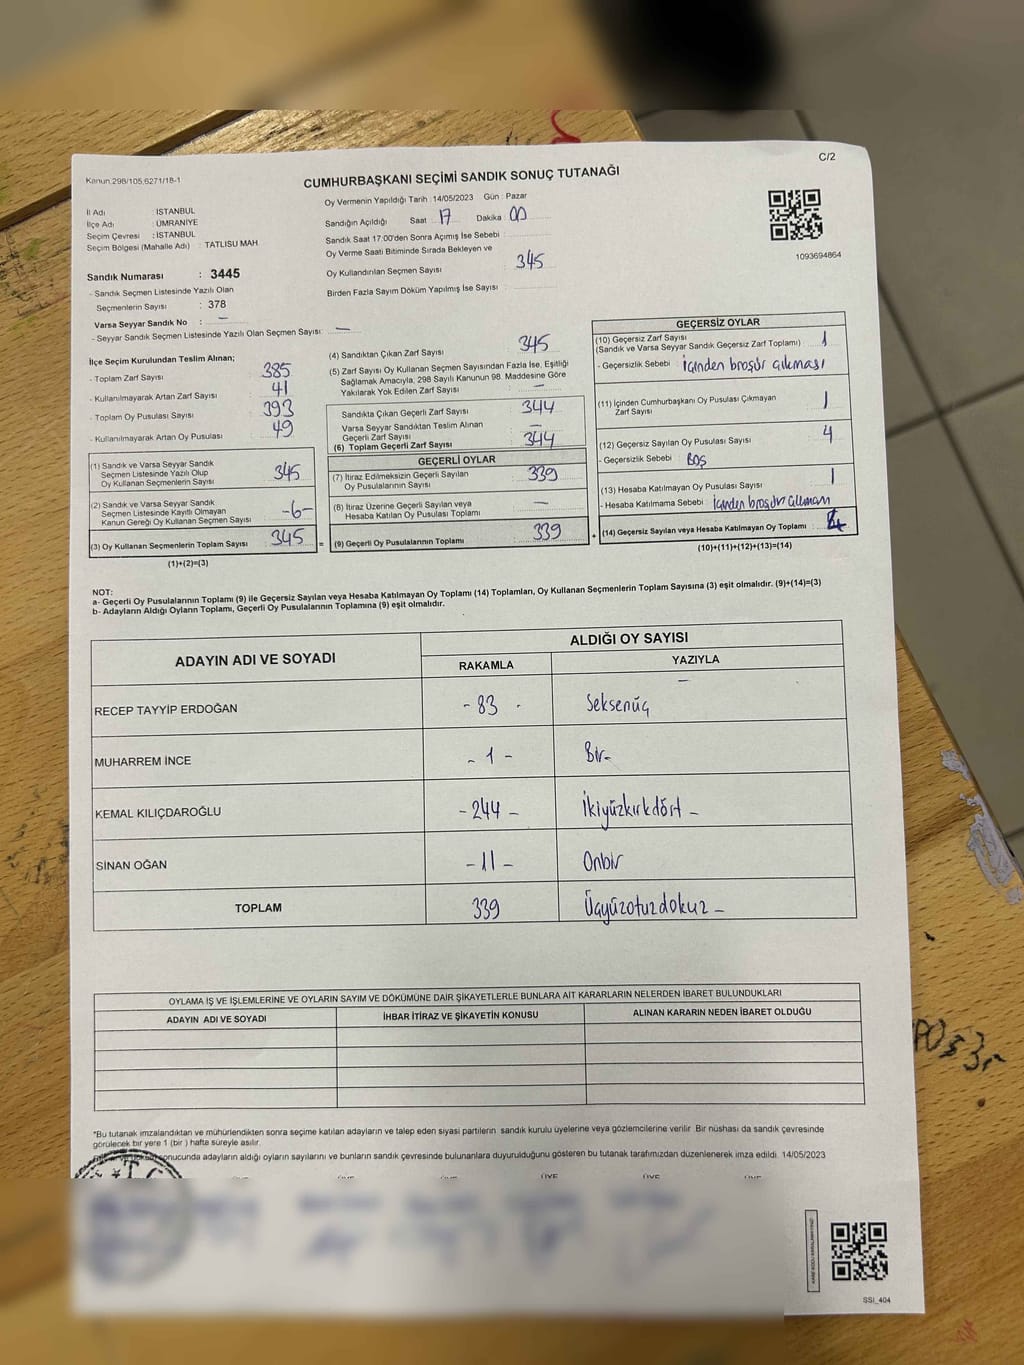 C/2
Kanun 298/105,6271/18-1
CUMHURBAŞKANI SEÇİMİ SANDIK SONUÇ TUTANAĞI
Oy Vermenin Yapıldığı Tarih : 14/05/2023 Gün : Pazar
İl Adı : İSTANBUL
İlçe Adı : ÜMRANİYE
Seçim Çevresi : İSTANBUL
Seçim Bölgesi (Mahalle Adı) : TATLISU MAH
Sandığın Açıldığı Saat 17 Dakika 00
Sandık Saat 17:00'den Sonra Açımış İse Sebebi :
Oy Verme Saati Bitiminde Sırada Bekleyen ve
Oy Kullandırılan Seçmen Sayısı 345
Birden Fazla Sayım Döküm Yapılmış İse Sayısı :
1093694864
Sandık Numarası : 3445
- Sandık Seçmen Listesinde Yazılı Olan
Seçmenlerin Sayısı : 378
Varsa Seyyar Sandık No : –
- Seyyar Sandık Seçmen Listesinde Yazılı Olan Seçmen Sayısı : –
İlçe Seçim Kurulundan Teslim Alınan;
- Toplam Zarf Sayısı 385
- Kullanılmayarak Artan Zarf Sayısı 41
- Toplam Oy Pusulası Sayısı 393
- Kullanılmayarak Artan Oy Pusulası 49
(1) Sandık ve Varsa Seyyar Sandık
Seçmen Listesinde Yazılı Olup
Oy Kullanan Seçmenlerin Sayısı 345
(2) Sandık ve Varsa Seyyar Sandık
Seçmen Listesinde Kayıtlı Olmayan
Kanun Gereği Oy Kullanan Seçmen Sayısı -6-
(3) Oy Kullanan Seçmenlerin Toplam Sayısı 345 =
(1)+(2)=(3)
(4) Sandıktan Çıkan Zarf Sayısı 345
(5) Zarf Sayısı Oy Kullanan Seçmen Sayısından Fazla İse, Eşitliği
Sağlamak Amacıyla, 298 Sayılı Kanunun 98. Maddesine Göre
Yakılarak Yok Edilen Zarf Sayısı –
Sandıkta Çıkan Geçerli Zarf Sayısı 344
Varsa Seyyar Sandıktan Teslim Alınan
Geçerli Zarf Sayısı –
(6) Toplam Geçerli Zarf Sayısı 344
GEÇERLİ OYLAR
(7) İtiraz Edilmeksizin Geçerli Sayılan
Oy Pusulalarının Sayısı 339
(8) İtiraz Üzerine Geçerli Sayılan veya
Hesaba Katılan Oy Pusulası Toplamı –
(9) Geçerli Oy Pusulalarının Toplamı 339 +
GEÇERSİZ OYLAR
(10) Geçersiz Zarf Sayısı
(Sandık ve Varsa Seyyar Sandık Geçersiz Zarf Toplamı) 1
- Geçersizlik Sebebi İçinden broşür çıkması
(11) İçinden Cumhurbaşkanı Oy Pusulası Çıkmayan
Zarf Sayısı 1
(12) Geçersiz Sayılan Oy Pusulası Sayısı 4
- Geçersizlik Sebebi Boş
(13) Hesaba Katılmayan Oy Pusulası Sayısı 1
- Hesaba Katılmama Sebebi : İçinden broşür çıkması
(14) Geçersiz Sayılan veya Hesaba Katılmayan Oy Toplamı
(10)+(11)+(12)+(13)=(14)
NOT:
a- Geçerli Oy Pusulalarının Toplamı (9) ile Geçersiz Sayılan veya Hesaba Katılmayan Oy Toplamı (14) Toplamları, Oy Kullanan Seçmenlerin Toplam Sayısına (3) eşit olmalıdır. (9)+(14)=(3)
b- Adayların Aldığı Oyların Toplamı, Geçerli Oy Pusulalarının Toplamına (9) eşit olmalıdır.
ADAYIN ADI VE SOYADI
ALDIĞI OY SAYISI
RAKAMLA YAZIYLA
RECEP TAYYİP ERDOĞAN - 83 - Seksenüç
MUHARREM İNCE - 1 - Bir-
KEMAL KILIÇDAROĞLU - 244 - İkiyüzkırkdört -
SİNAN OĞAN - 11 - Onbir
TOPLAM 339 Üçyüzotuzdokuz -
OYLAMA İŞ VE İŞLEMLERİNE VE OYLARIN SAYIM VE DÖKÜMÜNE DAİR ŞİKAYETLERLE BUNLARA AİT KARARLARIN NELERDEN İBARET BULUNDUKLARI
ADAYIN ADI VE SOYADI İHBAR İTİRAZ VE ŞİKAYETİN KONUSU ALINAN KARARIN NEDEN İBARET OLDUĞU
*Bu tutanak imzalandıktan ve mühürlendikten sonra seçime katılan adayların ve talep eden siyasi partilerin sandık kurulu üyelerine veya gözlemcilerine verilir. Bir nüshası da sandık çevresinde
görülecek bir yere 1 (bir) hafta süreyle asılır.
sonucunda adayların aldığı oyların sayılarını ve bunların sandık çevresinde bulunanlara duyurulduğunu gösteren bu tutanak tarafımızdan düzenlenerek imza edildi. 14/05/2023
T.C.
ÜYE ÜYE ÜYE ÜYE ÜYE ÜYE
SSİ_404